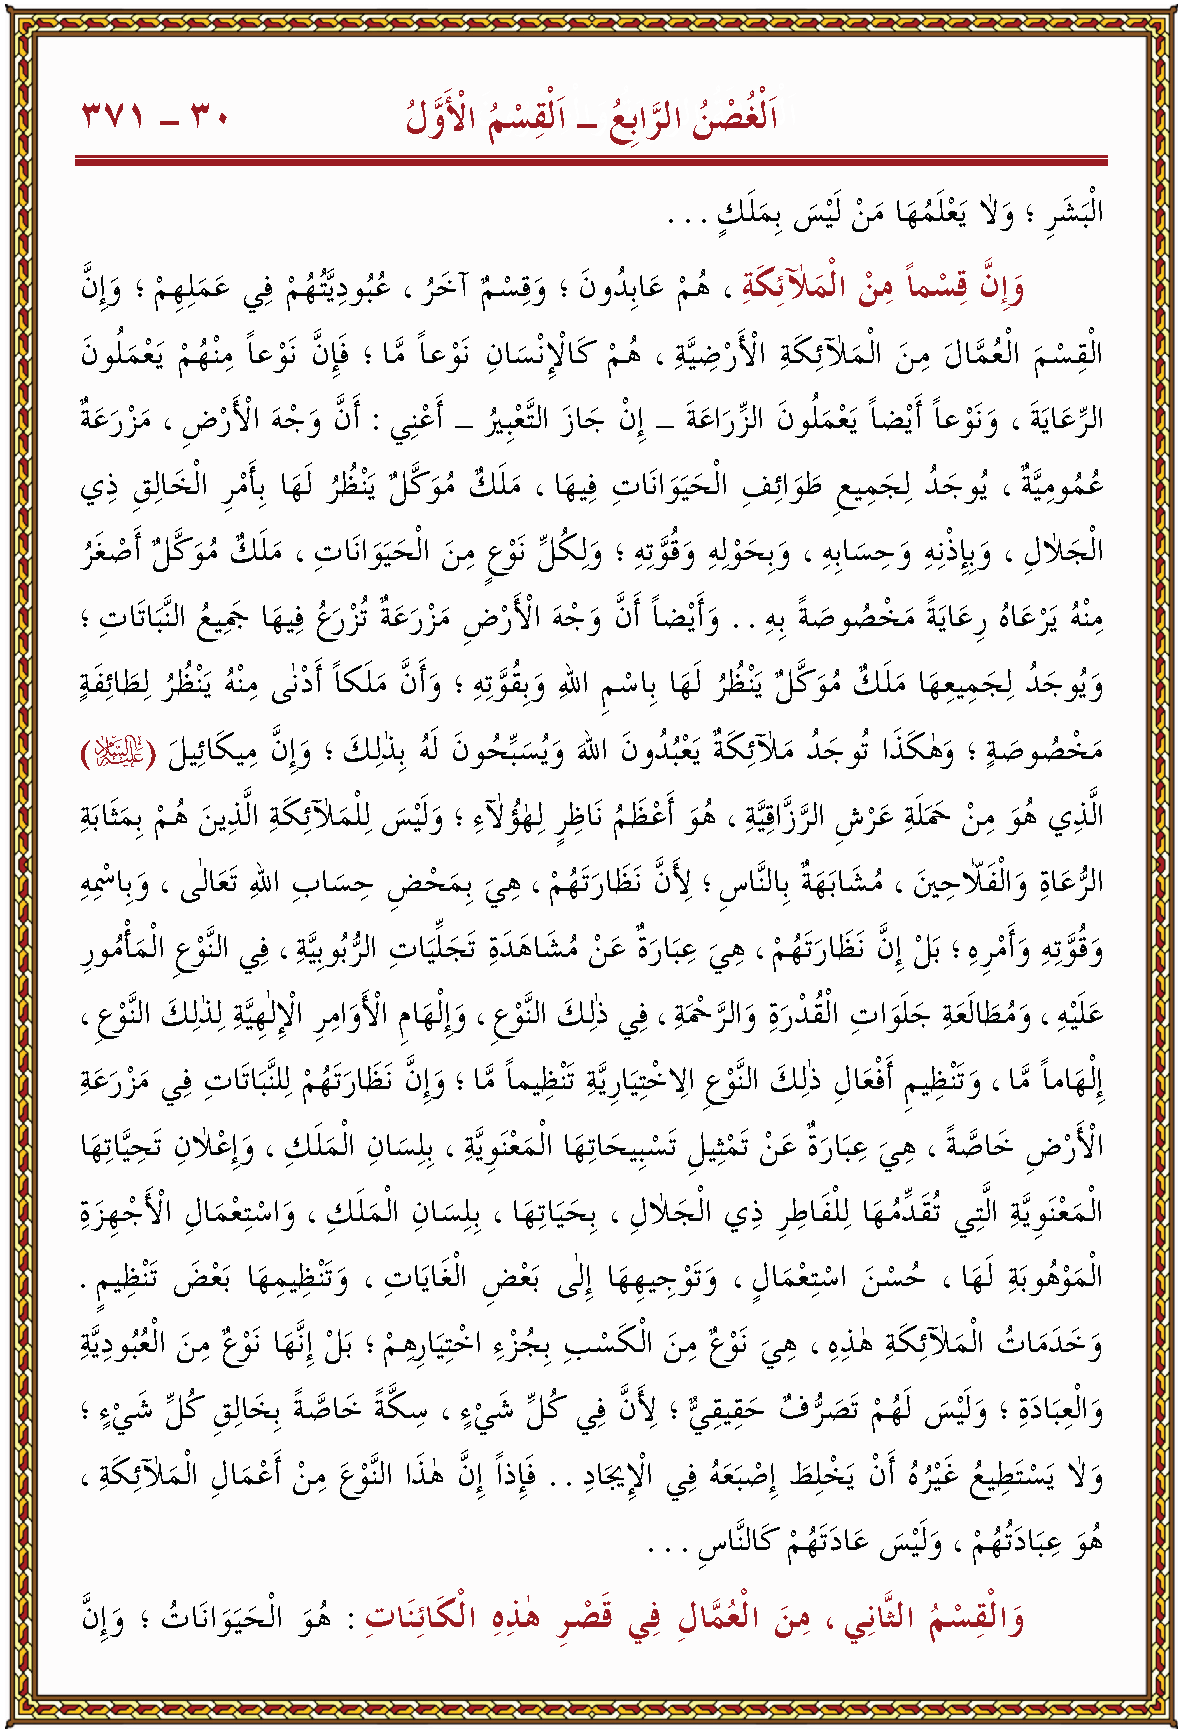 اَلْغُصْنُ الرَّابِعُ – اَلْقِسْمُ الْأَوَّلُ ٣٠ – ٣٧١
الْبَشَرِ ؛ وَلاٰ يَعْلَمُهَا مَنْ لَيْسَ بِمَلَكٍ . . .
وَإِنَّ قِسْماً مِنْ الْمَلاٰۤئِكَةِ ، هُمْ عَابِدُونَ ؛ وَقِسْمٌ آخَرُ ، عُبُودِيَّتُهُمْ فِي عَمَلِهِمْ ؛ وَإِنَّ
الْقِسْمَ الْعُمَّالَ مِنَ الْمَلاٰۤئِكَةِ الْأَرْضِيَّةِ ، هُمْ كَالْإِنْسَانِ نَوْعاً مَّا ؛ فَإِنَّ نَوْعاً مِنْهُمْ يَعْمَلُونَ
الرِّعَايَةَ ، وَنَوْعاً أَيْضاً يَعْمَلُونَ الزِّرَاعَةَ – إِنْ جَازَ التَّعْبِيرُ – أَعْنِي : أَنَّ وَجْهَ الْأَرْضِ ، مَزْرَعَةٌ
عُمُومِيَّةٌ ، يُوجَدُ لِجَمِيعِ طَوَائِفِ الْحَيَوَانَاتِ فِيهَا ، مَلَكٌ مُوَكَّلٌ يَنْظُرُ لَهَا بِأَمْرِ الْخَالِقِ ذِي
الْجَلاٰلِ ، وَبِإِذْنِهِ وَحِسَابِهِ ، وَبِحَوْلِهِ وَقُوَّتِهِ ؛ وَلِكُلِّ نَوْعٍ مِنَ الْحَيَوَانَاتِ ، مَلَكٌ مُوَكَّلٌ أَصْغَرُ
مِنْهُ يَرْعَاهُ رِعَايَةً مَخْصُوصَةً بِهِ . . وَأَيْضاً أَنَّ وَجْهَ الْأَرْضِ مَزْرَعَةٌ تُزْرَعُ فِيهَا جَمِيعُ النَّبَاتَاتِ ؛
وَيُوجَدُ لِجَمِيعِهَا مَلَكٌ مُوَكَّلٌ يَنْظُرُ لَهَا بِاسْمِ اللهِ وَبِقُوَّتِهِ ؛ وَأَنَّ مَلَكاً أَدْنٰى مِنْهُ يَنْظُرُ لِطَائِفَةٍ
مَخْصُوصَةٍ ؛ وَهٰكَذَا تُوجَدُ مَلاٰۤئِكَةٌ يَعْبُدُونَ اللهَ وَيُسَبِّحُونَ لَهُ بِذٰلِكَ ؛ وَإِنَّ مِيكَائِيلَ (عَلَيْهِ السَّلَامُ)
الَّذِي هُوَ مِنْ حَمَلَةِ عَرْشِ الرَّزَّاقِيَّةِ ، هُوَ أَعْظَمُ نَاظِرٍ لِهٰؤُلاٰۤءِ ؛ وَلَيْسَ لِلْمَلاٰۤئِكَةِ الَّذِينَ هُمْ بِمَثَابَةِ
الرُّعَاةِ وَالْفَلاّٰحِينَ ، مُشَابَهَةٌ بِالنَّاسِ ؛ لِأَنَّ نَظَارَتَهُمْ ، هِيَ بِمَحْضِ حِسَابِ اللهِ تَعَالٰى ، وَبِاسْمِهِ
وَقُوَّتِهِ وَأَمْرِهِ ؛ بَلْ إِنَّ نَظَارَتَهُمْ ، هِيَ عِبَارَةٌ عَنْ مُشَاهَدَةِ تَجَلِّيَاتِ الرُّبُوبِيَّةِ ، فِي النَّوْعِ الْمَأْمُورِ
عَلَيْهِ ، وَمُطَالَعَةِ جَلَوَاتِ الْقُدْرَةِ وَالرَّحْمَةِ ، فِي ذٰلِكَ النَّوْعِ ، وَإِلْهَامِ الْأَوَامِرِ الْإِلٰهِيَّةِ لِذٰلِكَ النَّوْعِ ،
إِلْهَاماً مَّا ، وَتَنْظِيمِ أَفْعَالِ ذٰلِكَ النَّوْعِ الاِخْتِيَارِيَّةِ تَنْظِيماً مَّا ؛ وَإِنَّ نَظَارَتَهُمْ لِلنَّبَاتَاتِ فِي مَزْرَعَةِ
الْأَرْضِ خَاصَّةً ، هِيَ عِبَارَةٌ عَنْ تَمْثِيلِ تَسْبِيحَاتِهَا الْمَعْنَوِيَّةِ ، بِلِسَانِ الْمَلَكِ ، وَإِعْلاٰنِ تَحِيَّاتِهَا
الْمَعْنَوِيَّةِ الَّتِي تُقَدِّمُهَا لِلْفَاطِرِ ذِي الْجَلاٰلِ ، بِحَيَاتِهَا ، بِلِسَانِ الْمَلَكِ ، وَاسْتِعْمَالِ الْأَجْهِزَةِ
الْمَوْهُوبَةِ لَهَا ، حُسْنَ اسْتِعْمَالٍ ، وَتَوْجِيهِهَا إِلٰى بَعْضِ الْغَايَاتِ ، وَتَنْظِيمِهَا بَعْضَ تَنْظِيمٍ .
وَخَدَمَاتُ الْمَلاٰۤئِكَةِ هٰذِهِ ، هِيَ نَوْعٌ مِنَ الْكَسْبِ بِجُزْءِ اخْتِيَارِهِمْ ؛ بَلْ إِنَّهَا نَوْعٌ مِنَ الْعُبُودِيَّةِ
وَالْعِبَادَةِ ؛ وَلَيْسَ لَهُمْ تَصَرُّفٌ حَقِيقِيٌّ ؛ لِأَنَّ فِي كُلِّ شَيْءٍ ، سِكَّةً خَاصَّةً بِخَالِقِ كُلِّ شَيْءٍ ؛
وَلاٰ يَسْتَطِيعُ غَيْرُهُ أَنْ يَخْلِطَ إِصْبَعَهُ فِي الْإِيجَادِ . . فَإِذاً إِنَّ هٰذَا النَّوْعَ مِنْ أَعْمَالِ الْمَلاٰۤئِكَةِ ،
هُوَ عِبَادَتُهُمْ ، وَلَيْسَ عَادَتَهُمْ كَالنَّاسِ . . .
وَالْقِسْمُ الثَّانِي ، مِنَ الْعُمَّالِ فِي قَصْرِ هٰذِهِ الْكَائِنَاتِ : هُوَ الْحَيَوَانَاتُ ؛ وَإِنَّ